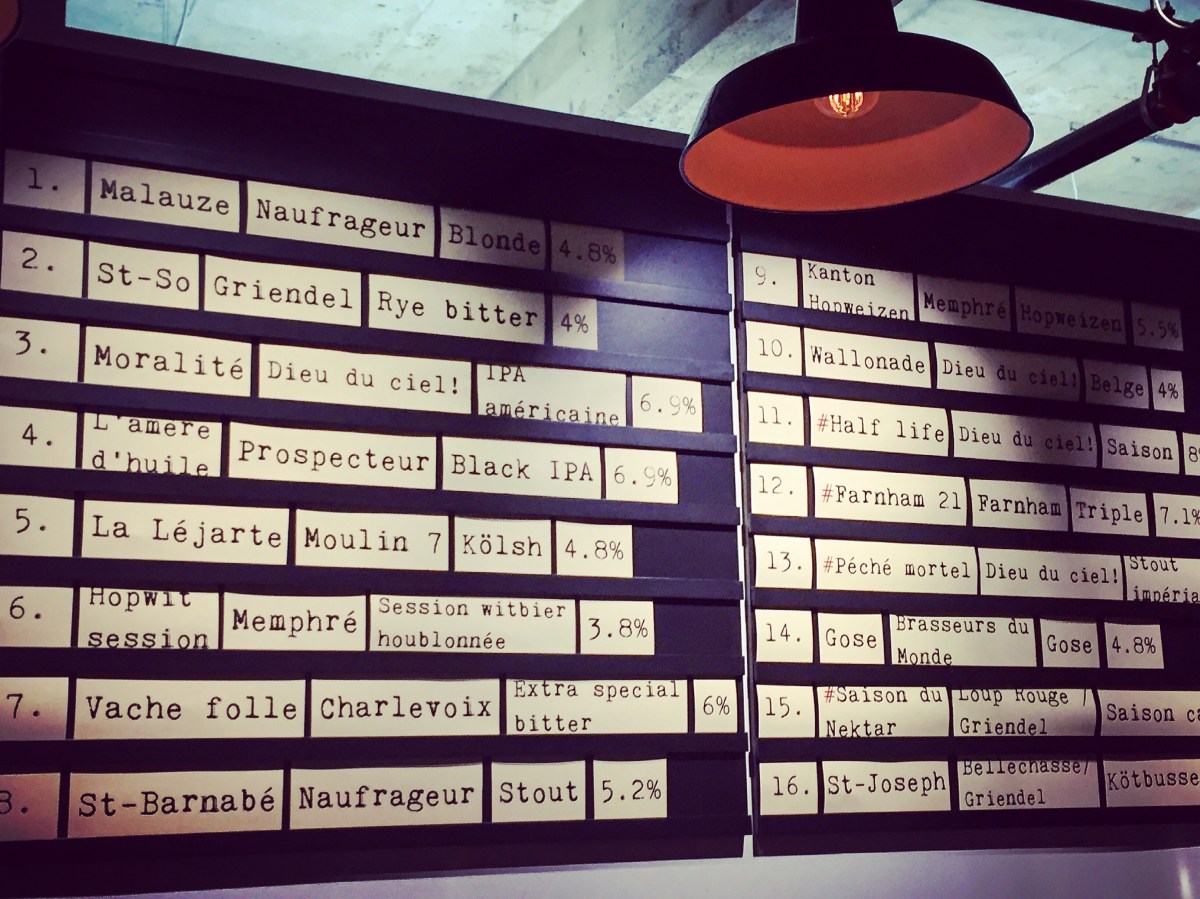 1. Malauze Naufrageur Blonde 4.8%
2. St-So Griendel Rye bitter 4%
3. Moralité Dieu du ciel! IPA américaine 6.9%
4. L'amère d'huile Prospecteur Black IPA 6.9%
5. La Léjarte Moulin 7 Kölsh 4.8%
6. Hopwit session Memphré Session witbier houblonnée 3.8%
7. Vache folle Charlevoix Extra special bitter 6%
8. St-Barnabé Naufrageur Stout 5.2%
9. Kanton Hopweizen Memphré Hopweizen 5.5%
10. Wallonade Dieu du ciel! Belge 4%
11. #Half life Dieu du ciel! Saison 8
12. #Farnham 21 Farnham Triple 7.1%
13. #Péché mortel Dieu du ciel! Stout impéria
14. Gose Brasseurs du Monde Gose 4.8%
15. #Saison du Nektar Loup Rouge / Griendel Saison ca
16. St-Joseph Bellechasse/ Griendel Kötbusse